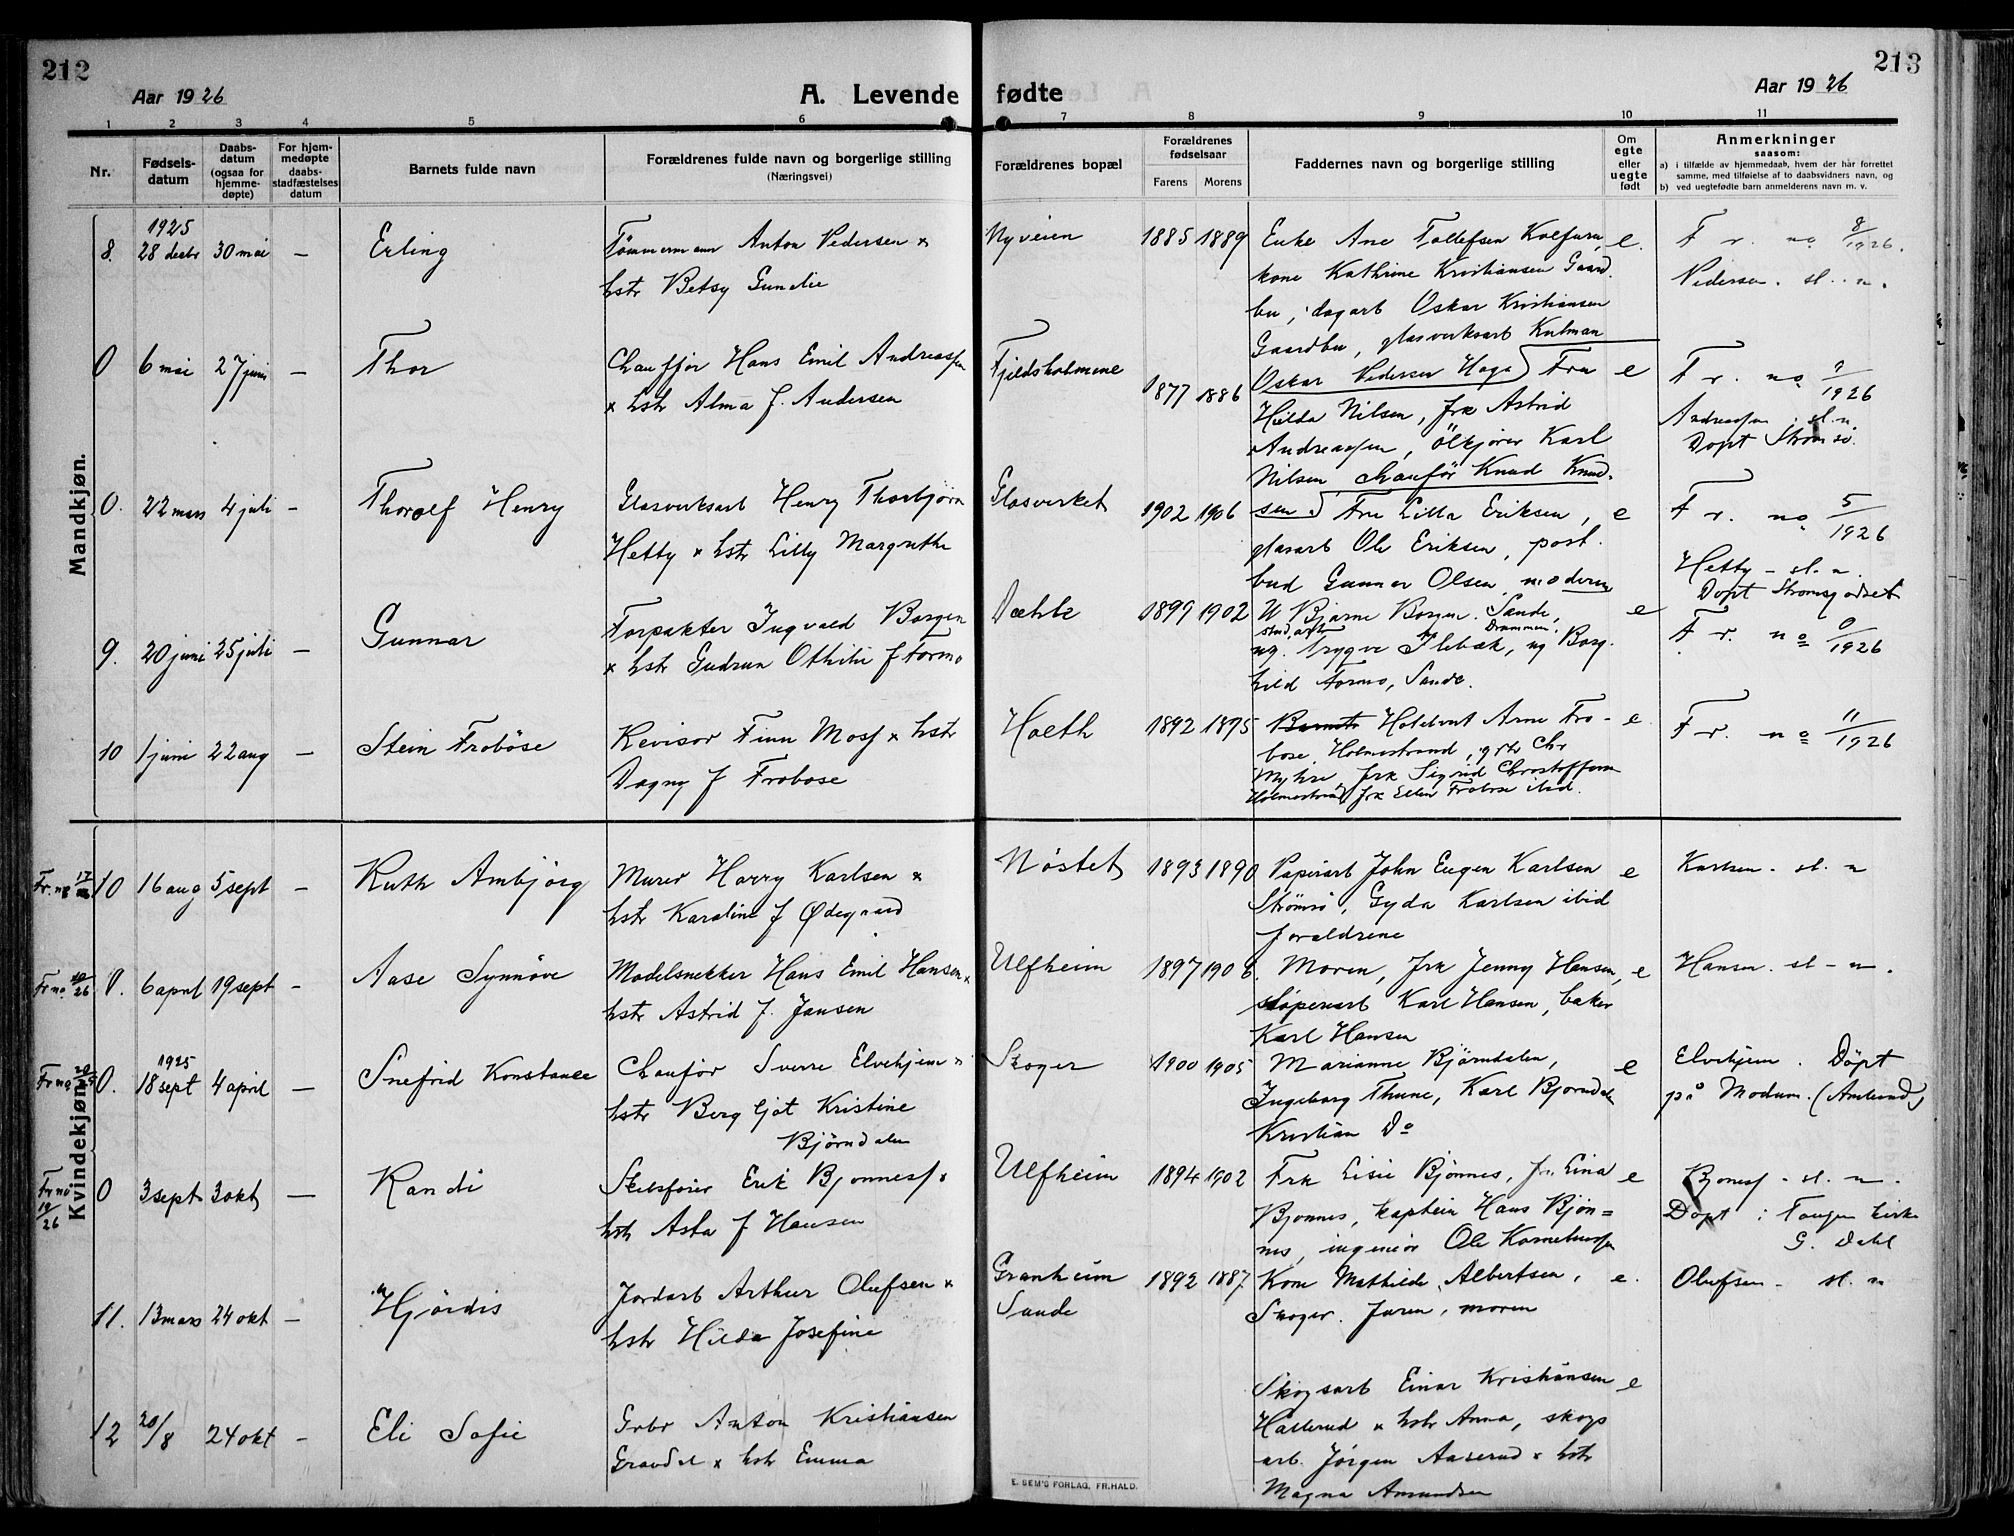 212
Aar 1926
A. Levende
1 2 3 4 5 6
Nr.
Fødsels-
datum
Daabs-
datum
(ogsaa for
hjemme-
døpte)
For hjem-
medøpte
daabs-
stadfæstelses
datum
Barnets fulde navn
Forældrenes fulde navn og borgerlige stilling
(Næringsvei)
Mandkjøn.
1925
8. 28 decbr 30 mai – Erling
Tømmermann Anton Pedersen ×
hstr Betsy Gundie
0 6 mai 27 juni – Thor
Chauffør Hans Emil Andreassen
× hstr Alma f. Andersen
0. 22 mars 4 juli – Thorolf Henry
Glasverksarb Henry Thorbjørn
Hetty × hstr Lilly Margrethe
9. 20 juni 25 juli – Gunnar
Forpakter Ingvald Borgen
× hstr Gudrun Othilie f Formo
10 1 juni 22 aug – Stein Frobøse
Revisor Finn Moss × hstr
Dagny f Frobose
Kvindekjøn.
Fr. no 17
10 16 aug 5 sept – Ruth Ambjørg
Murer Harry Karlsen ×
hstr Karoline f Ødegaard
Fr no 10/26
0. 6 april 19 sept – Aase Synnøve
Modelsnekker Hans Emil Hansen ×
hstr Astrid f. Jansen
1925
Fr no
0. 18 sept 4 april – Snefrid Konstance
Chaufør Sverre Elvehjem ×
hstr Bergljot Kristine
Bjørndalen
Fr no
19/26
0 3 sept 3 okt – Randi
Skibsfører Erik Bjønness ×
hstr Asta f Hansen
11. 13 mars 24 okt – Hjørdis
Jordarb Arthur Olufsen ×
hstr Hilda Josefine
12 20/8 24 okt – Eli Sofie
Grbr Anton Kristiansen
Gravdal × hstr Emma
213
fødte
Aar 1926
7 8 9 10 11
Forældrenes bopæl
Forældrenes
fødselsaar
Farens Morens
Faddernes navn og borgerlige stilling
Om
egte
eller
uegte
født
Anmerkninger
saasom:
a) i tilfælde av hjemmedaab, hvem der hår forrettet
samme, med tilføielse af to daabsvidners navn, og
b) ved uegtefødte barn anmelderens navn m. v.
Nyveien 1885 1889 Enke Ane Tollefsen Kolfurn, e. F r. no 8/1926.
kone Kathrine Kristiansen Gaard- Pedersen. sl. n.
bu, dagarb Oskar Kristiansen
Gaardbu, glasverksarb Kulman
Fjeldsholmene 1877 1886 Oskar Pedersen Haga Fru e F r. no 9/1926
Hilda Nilsen, frk Astrid Andreassen sl. n.
Andreassen, Ølkjører Karl Døpt Strømsø.
Nilsen chaufør Knud Knud-
Glasverket 1902 1906 sen. Fru Lilla Eriksen, e F r. no 5/1926
glasarb Ole Eriksen, post- Hetty – sl. n.
bud Gunnar Olsen, moderen Døpt Strømsgodset
Dæhle 1899 1902 U Bjarne Borgen. Sande, e F r. no 0/1926
stud. art Drammen.
ng. Trygve Ilebæk, ug Borg-
hild Formo, Sande.
Holth 1892 1895 Hotelvert Arne Fro- e F r. no 11/1926
bose, Holmestrand, grbr Chr
Myhre, frk Sigrid Christoffersen
Holmestrand, frk Ellen Frobose ibid.
Nøstet 1893 1890 Papirarb John Eugen Karlsen e Karlsen. sl. n
Strømsø, Gyda Karlsen ibid
foraldrene
Ulfheim 1897 1906. Moren, frk Jenny Hansen, e Hansen. sl – n.
støperiarb Karl Hansen, baker
Karl Hansen
Skoger 1900 1905 Marianne Bjørndalen, e Elvehjem. Døpt
Ingeborg Thune, Karl Bjørndalen på Modum. (Amlund)
Kristian Do
Ulfheim 1894 1902 Frk Lisie Bjønnes, fr. Lina e Bjøness – sl. n.
Bjønnes, kaptein Hans Bjøn= Døpt i Tangen kirke
nes, ingeniør Ole Korneliussen G. Dahl
Granheim 1892 1887 Kone Mathilde Albertsen, e. Olufsen – sl. n
Sande Skoger. Faren, moren
Skogsarb Einar Kristiansen e
Hallerud × hstr Anna, skogs
arb. Jørgen Aaserud × hstr
Magna Amundsen
E. SEM'S FORLAG, FR.HALD.